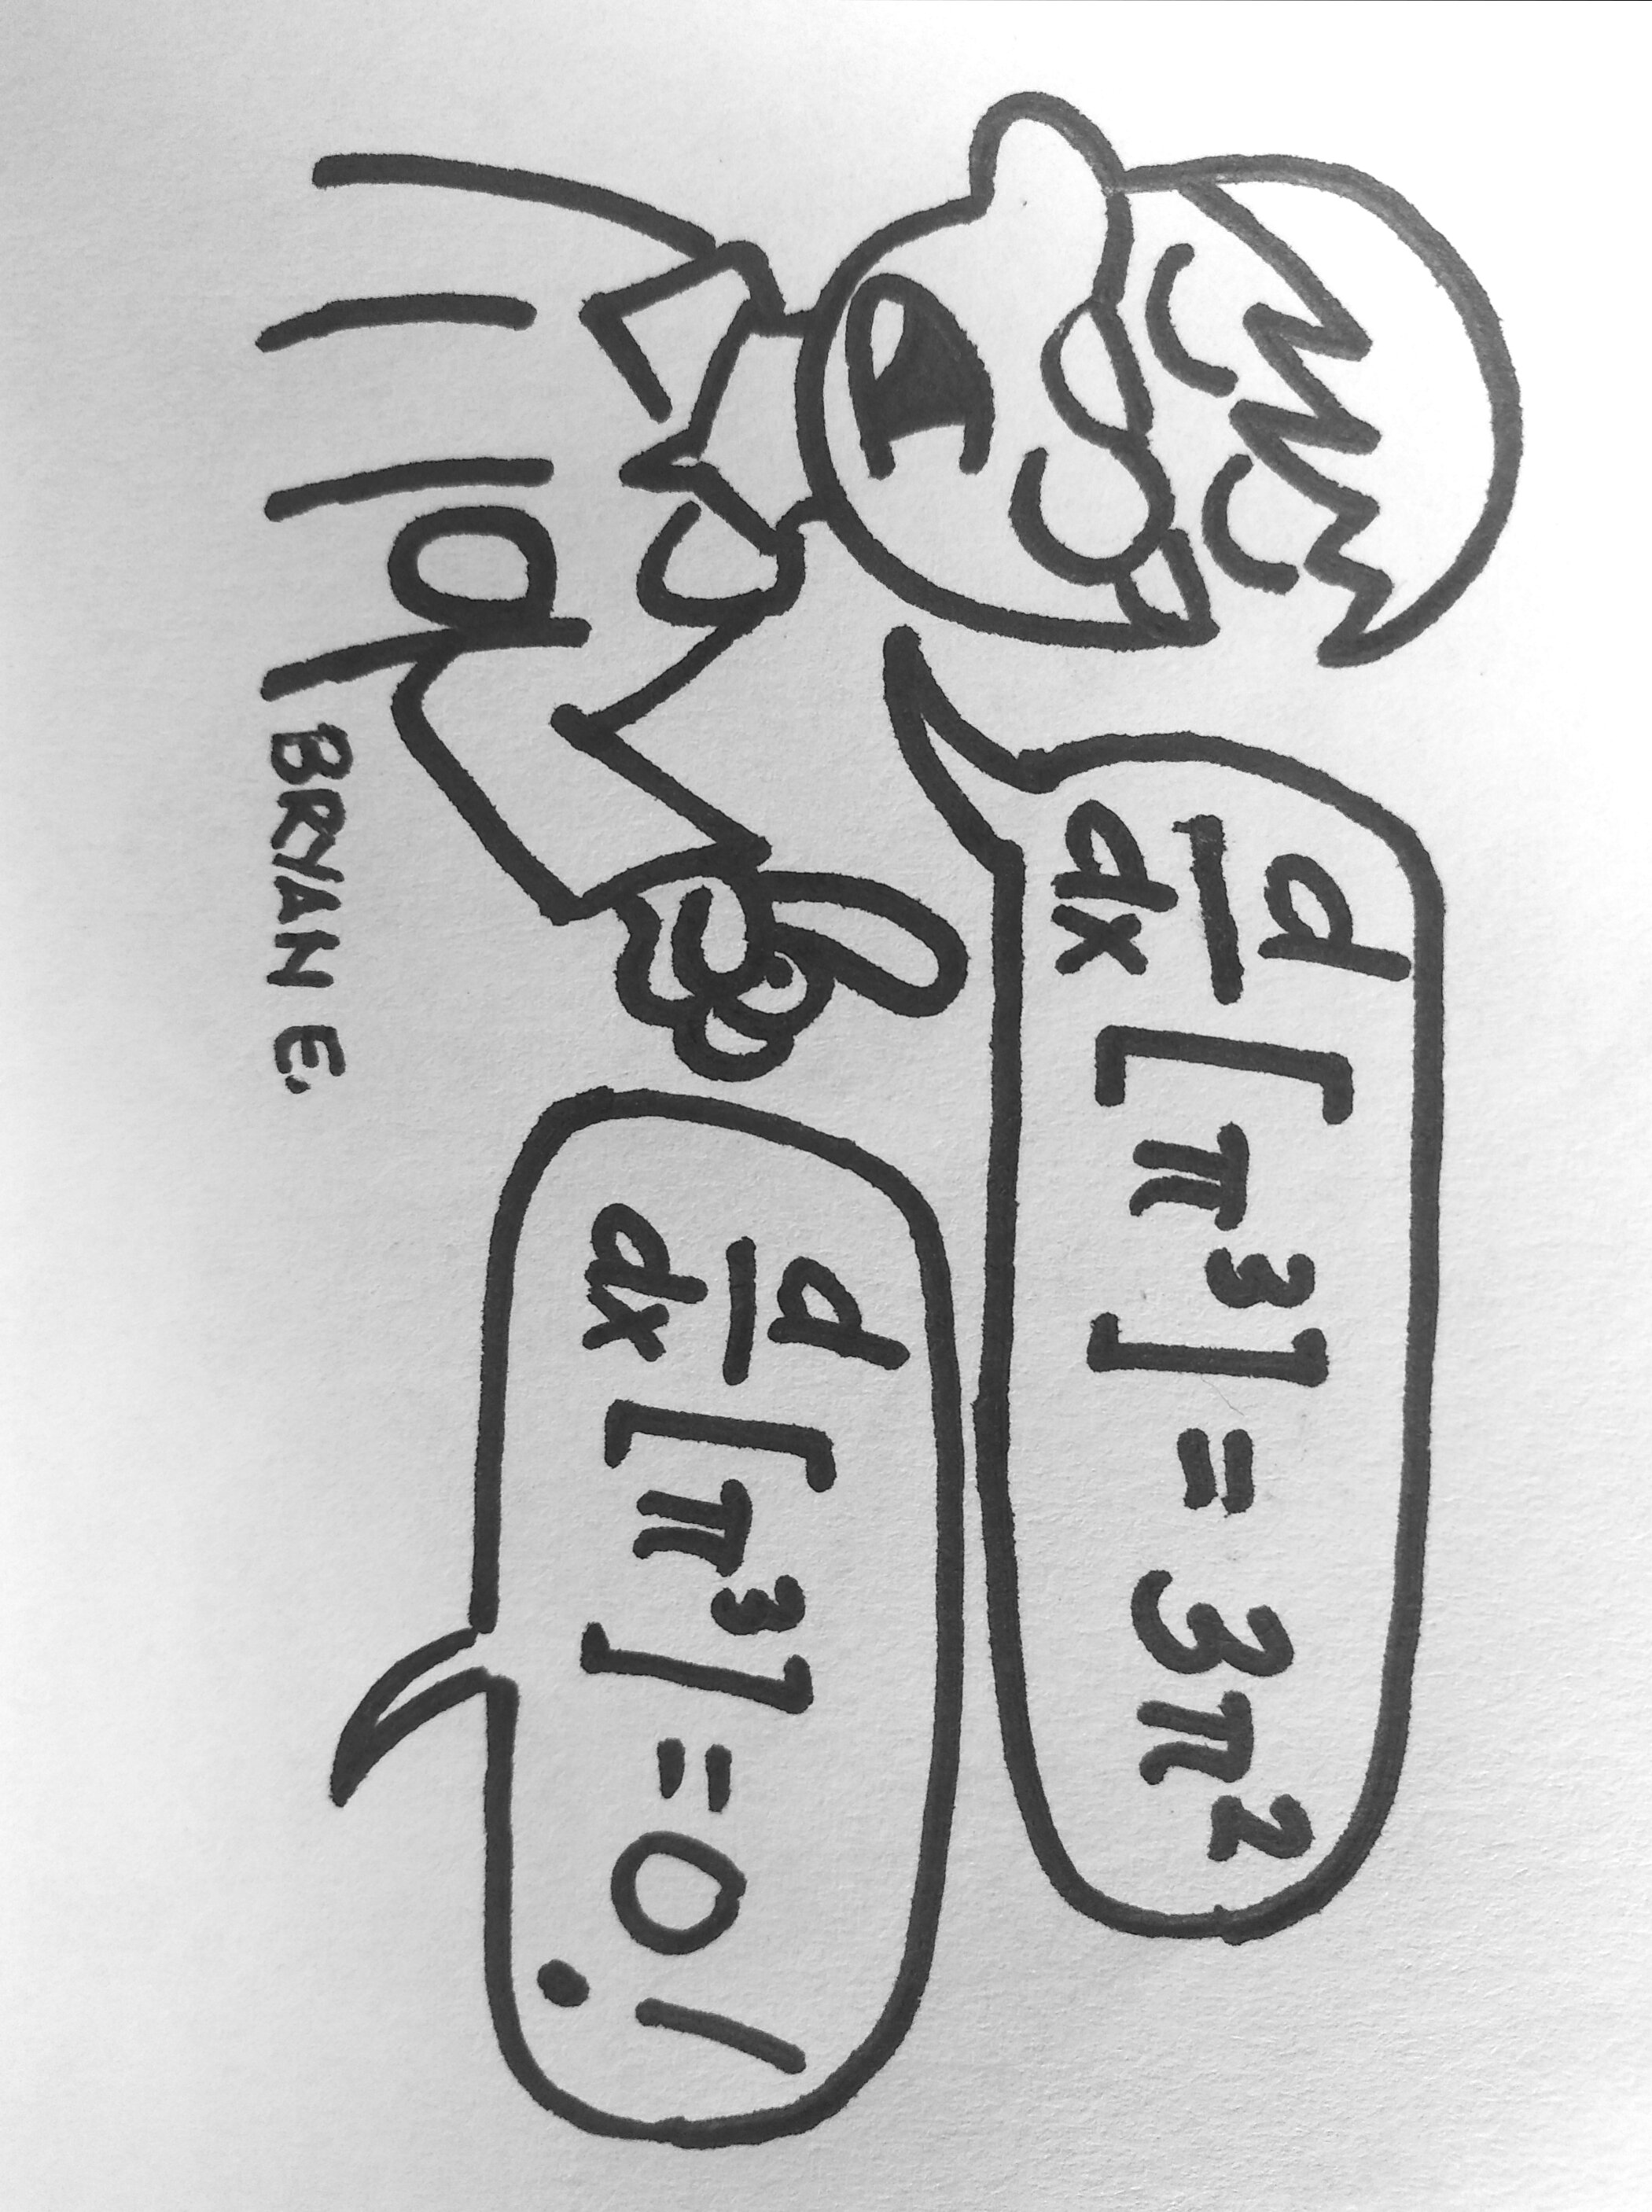 d/dx [π³] = 3π²
d/dx [π³] = 0!
BRYAN E.